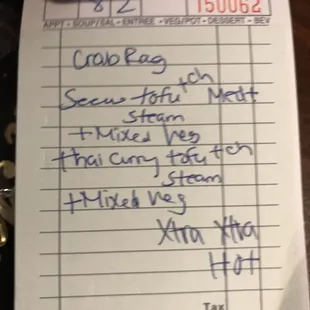 8 2 150062
APPT - SOUP/SAL - ENTREE - VEG/POT - DESSERT - BEV
Crab Rag
Secu tofu + ch Medt
Steam
+ Mixed veg
+ thai curry tofu + ch
Steam
+ Mixed veg
Xtra Xtra
Hot
Tax